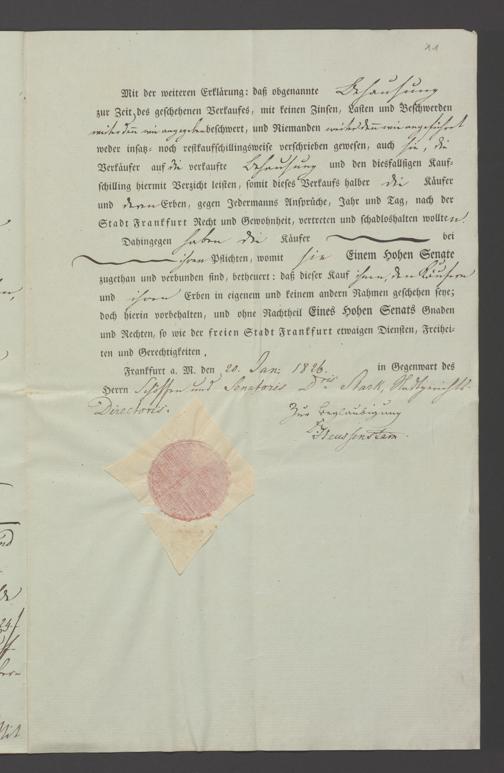 21
Mit der weiteren Erklärung: daß obgenannte Behausung
zur Zeit des geschehenen Verkaufes, mit keinen Zinsen, Lasten und Beschwerden
weiter denn wie angegeben beschwert, und Niemanden weiter denn wie angeführt
weder insatz- noch restkaufschillingsweise verschrieben gewesen, auch sie, die
Verkäufer auf die verkaufte Behausung und den diesfallsigen Kauf-
schilling hiermit Verzicht leisten, somit dieses Verkaufs halber die Käufer
und deren Erben, gegen Jedermanns Ansprüche, Jahr und Tag, nach der
Stadt Frankfurt Recht und Gewohnheit, vertreten und schadloshalten wollten.
Dahingegen haben die Käufer bei
ihren Pflichten, womit sie Einem Hohen Senate
zugethan und verbunden sind, betheuert: daß dieser Kauf ihnen, den Käufern
und ihren Erben in eigenem und keinem andern Nahmen geschehen seye;
doch hierin vorbehalten, und ohne Nachtheil Eines Hohen Senats Gnaden
und Rechten, so wie der freien Stadt Frankfurt etwaigen Diensten, Freihei-
ten und Gerechtigkeiten.
Frankfurt a. M. den 20. Jan: 1826. in Gegenwart des
Herrn Schöffen und Senatoris Dris Stadtgerichts-
Directoris.
Zur Beglaubigung